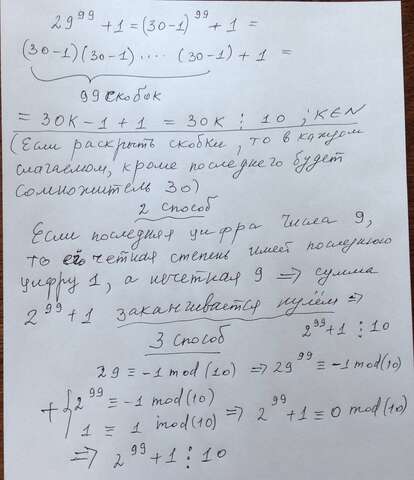 29⁹⁹ + 1 = (30-1)⁹⁹ + 1 =
(30-1)(30-1) .... (30-1) + 1 =
99 скобок
= 30K - 1 + 1 = 30K ⋮ 10 ; K∈N
(Если раскрыть скобки, то в каждом
слагаемом, кроме последнего будет
сомножитель 30)
2 способ
Если последняя цифра числа 9,
то его четная степень имеет последнюю
цифру 1, а нечетная 9 ⇒ сумма
2⁹⁹ + 1 заканчивается нулём ⇒
2⁹⁹ + 1 ⋮ 10
3 способ
29 ≡ -1 mod(10) ⇒ 29⁹⁹ ≡ -1 mod(10)
+ { 2⁹⁹ ≡ -1 mod(10)
1 ≡ 1 mod(10) ⇒ 2⁹⁹ + 1 ≡ 0 mod(10)
⇒ 2⁹⁹ + 1 ⋮ 10